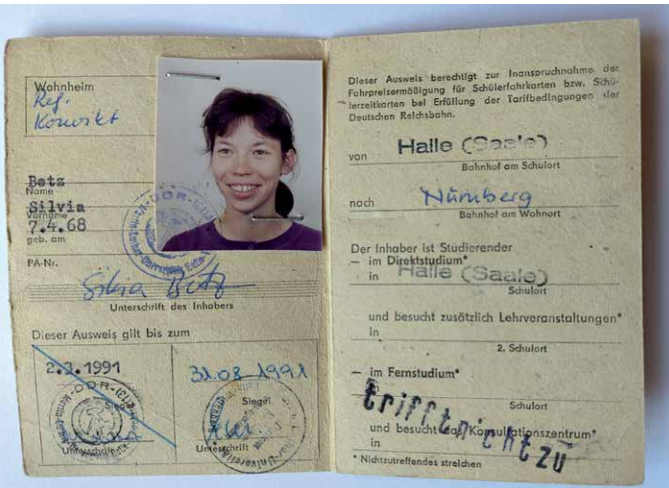 Wohnheim
Ref.
Konvikt
Betz
Name
Silvia
Vorname
7.4.68
geb. am
PA-Nr.
Silvia Betz
Unterschrift des Inhabers
Dieser Ausweis gilt bis zum
2.3.1991
31.08.1991
Siegel
Siegel
Unterschrift
Unterschrift
Dieser Ausweis berechtigt zur Inanspruchnahme der
Fahrpreisermäßigung für Schülerfahrkarten bzw. Schü-
lerzeitkarten bei Erfüllung der Tarifbedingungen der
Deutschen Reichsbahn.
von Halle (Saale)
Bahnhof am Schulort
nach Nürnberg
Bahnhof am Wohnort
Der Inhaber ist Studierender
— im Direktstudium*
in Halle (Saale)
Schulort
und besucht zusätzlich Lehrveranstaltungen*
in
2. Schulort
— im Fernstudium*
trifft nicht zu
Schulort
und besucht das Konsultationszentrum*
in
* Nichtzutreffendes streichen